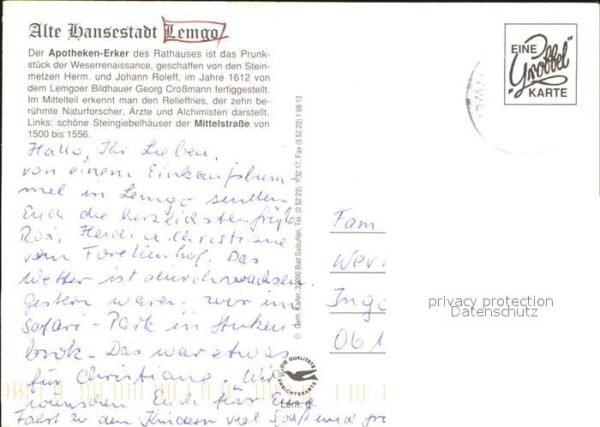 Alte Hansestadt Lemgo
Der Apotheken-Erker des Rathauses ist das Prunk-
stück der Weserrenaissance, geschaffen von den Stein-
metzen Herm. und Johann Roleff, im Jahre 1612 von
dem Lemgoer Bildhauer Georg Croßmann fertiggestellt.
Im Mittelteil erkennt man den Relieffries, der zehn be-
rühmte Naturforscher, Ärzte und Alchimisten darstellt.
Links: schöne Steingiebelhäuser der Mittelstraße von
1500 bis 1556.
Hallo, Ihr Lieben,
von einem Einkaufsbum-
mel in Lemgo senden
Euch die herzlichsten Grüße
Rosi, Heidi u. Christiane
vom Forellenhof. Das
Wetter ist durchwachsen.
gestern waren wir im
Safari-Park in Stuken
brok. Das war etwas
für Christiane. Wir
wünschen Euch für Eure
Fahrt zu den Kindern viel Spaß und
EINE
"Grobbel"
KARTE
© Gerh. Käller, 32090 Bad Salzuflen, Tel. (0 52 22) 1 32 17, Fax (0 52 22) 1 68 13
DIE QUALITÄTS
ANSICHTSKARTE
Fam
Wer
Ing
061
privacy protection
Datenschutz